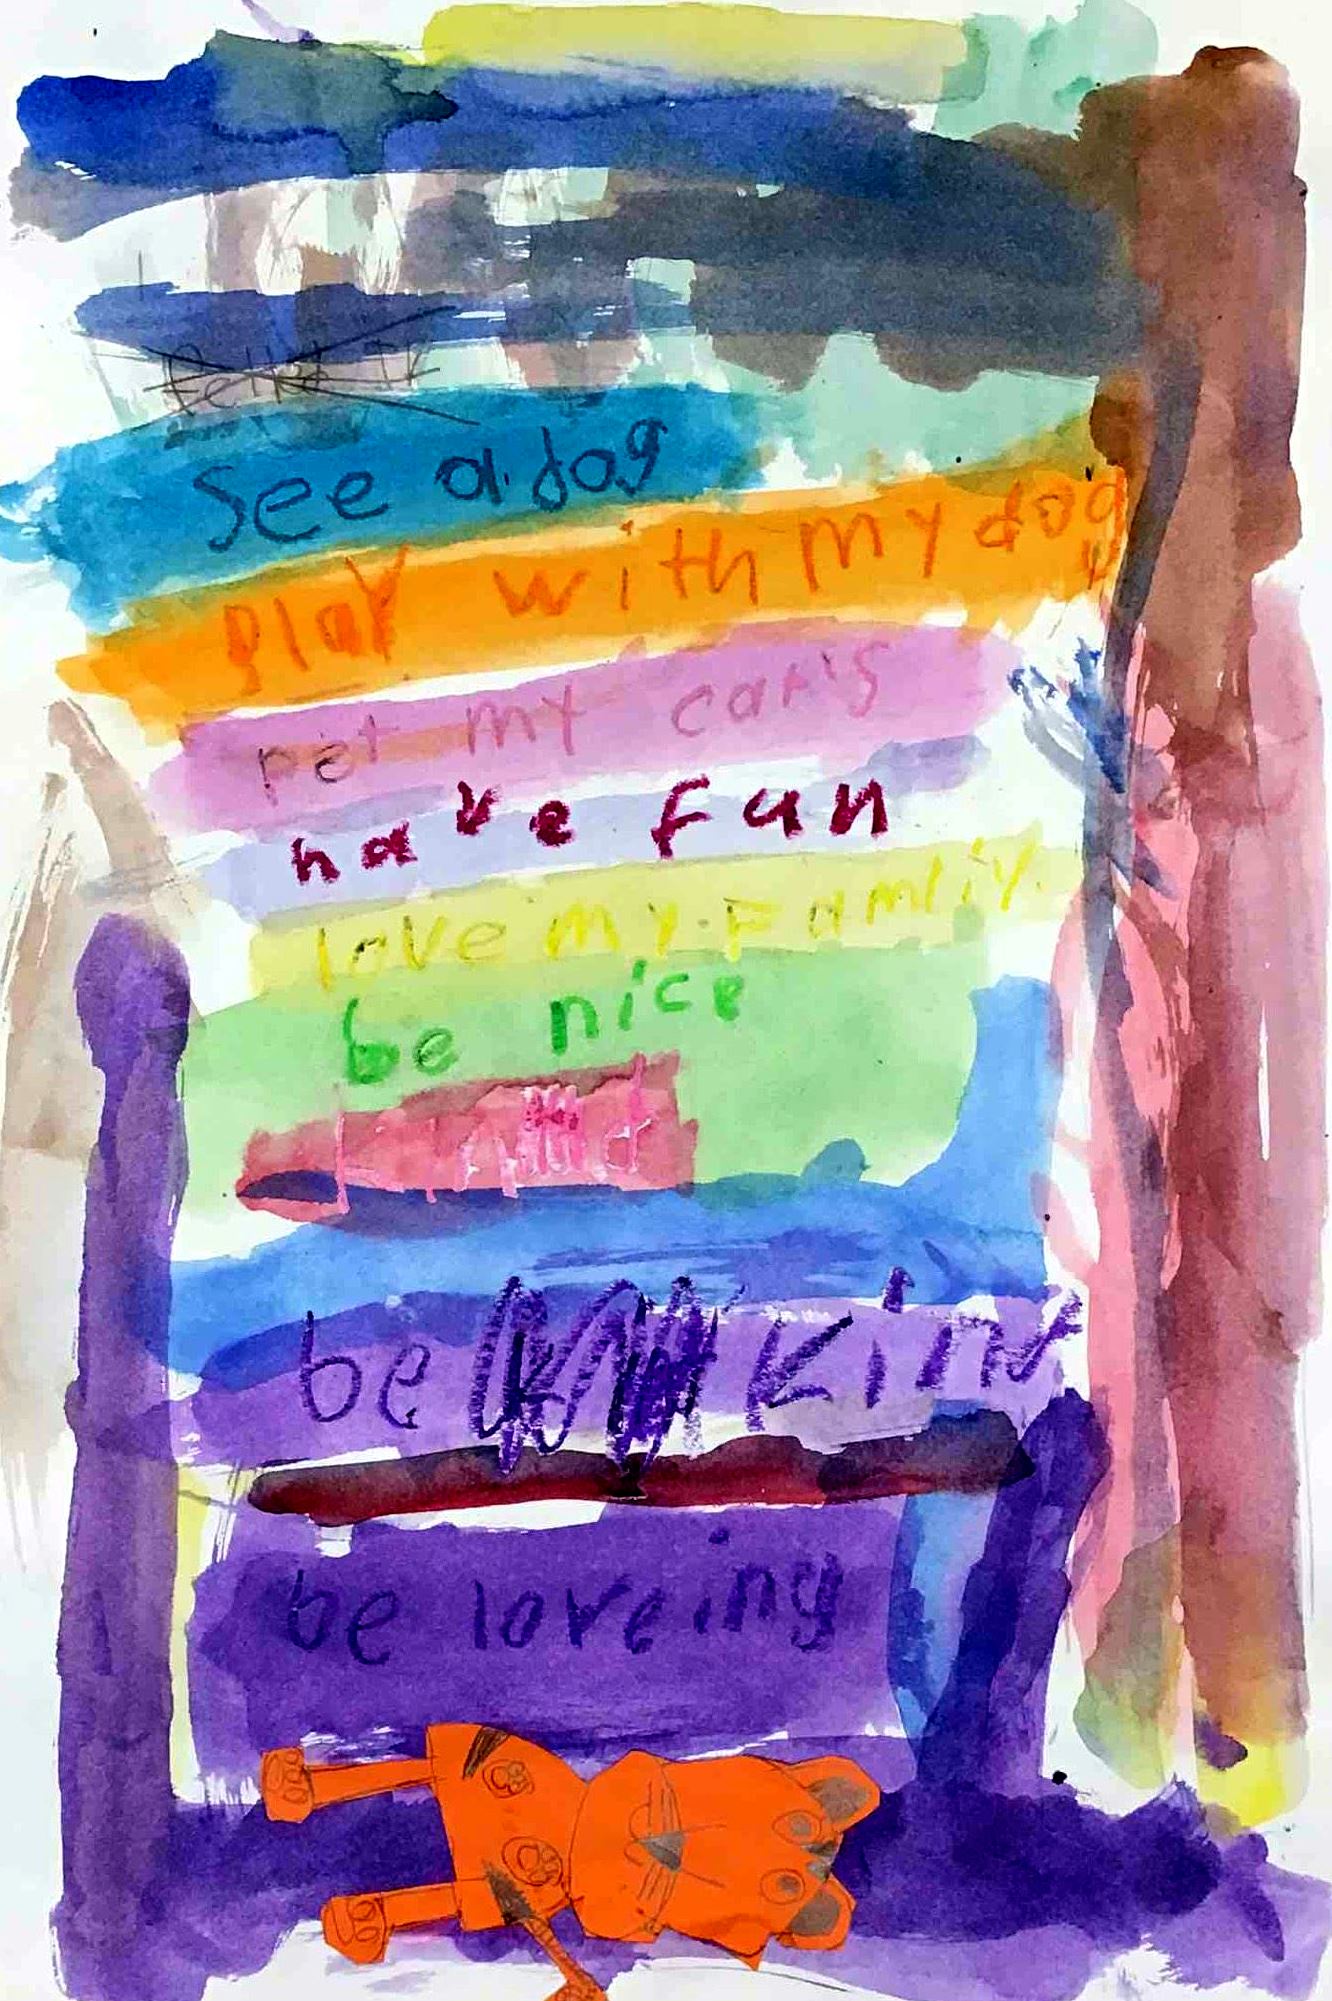 See a dog
Play with my dog
pet my cat's
have fun
love my Famliy.
be nice
be kind
be loveing